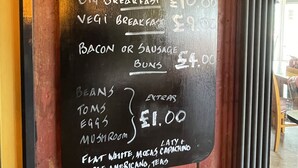 BIG BREAKFAST £10.00
VEGI BREAKFAST £9.00
BACON OR SAUSAGE
BUNS £4.00
BEANS
TOMS EXTRAS
EGGS £1.00
MUSHROOM
LATY +
FLAT WHITE, MOCAS CAPACHINO
AMERICANO, TEAS